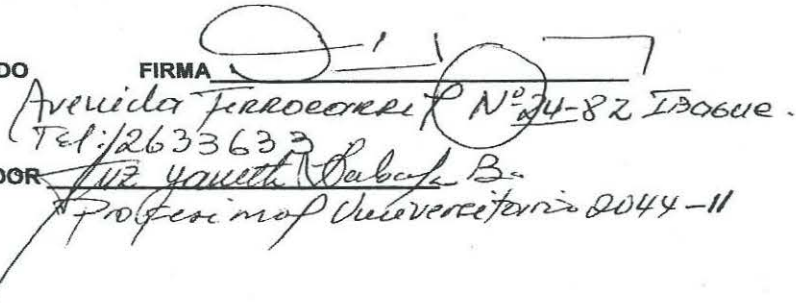 DO FIRMA
Avenida Ferrocarril Nº 24-82 Ibague.
Tel: 2633633
DOR Luz Yaneth B.
Profesional Universitario 2044-11